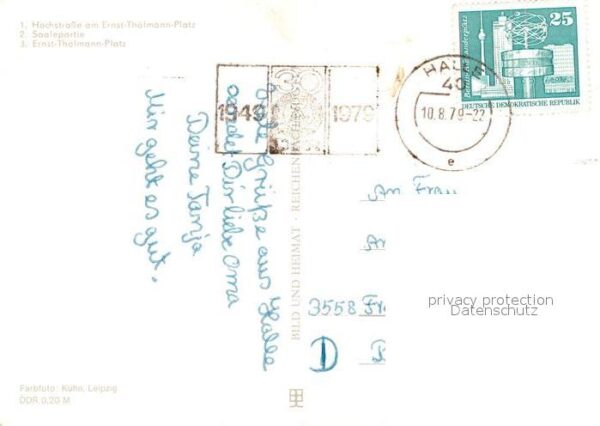 1. Hochstraße am Ernst-Thälmann-Platz
2. Saalepartie
3. Ernst-Thälmann-Platz
25
DEUTSCHE DEMOKRATISCHE REPUBLIK
HALLE
40
10.8.79-22
e
1949
30
1979
Grüße aus Halle
sendet Dir liebe Oma
Deine Tanja
Mir geht es gut.
BILD UND HEIMAT · REICHENBACH
An Frau
3558 Fr
D
privacy protection
Datenschutz
Farbfoto: Kühn, Leipzig
DDR 0,20 M